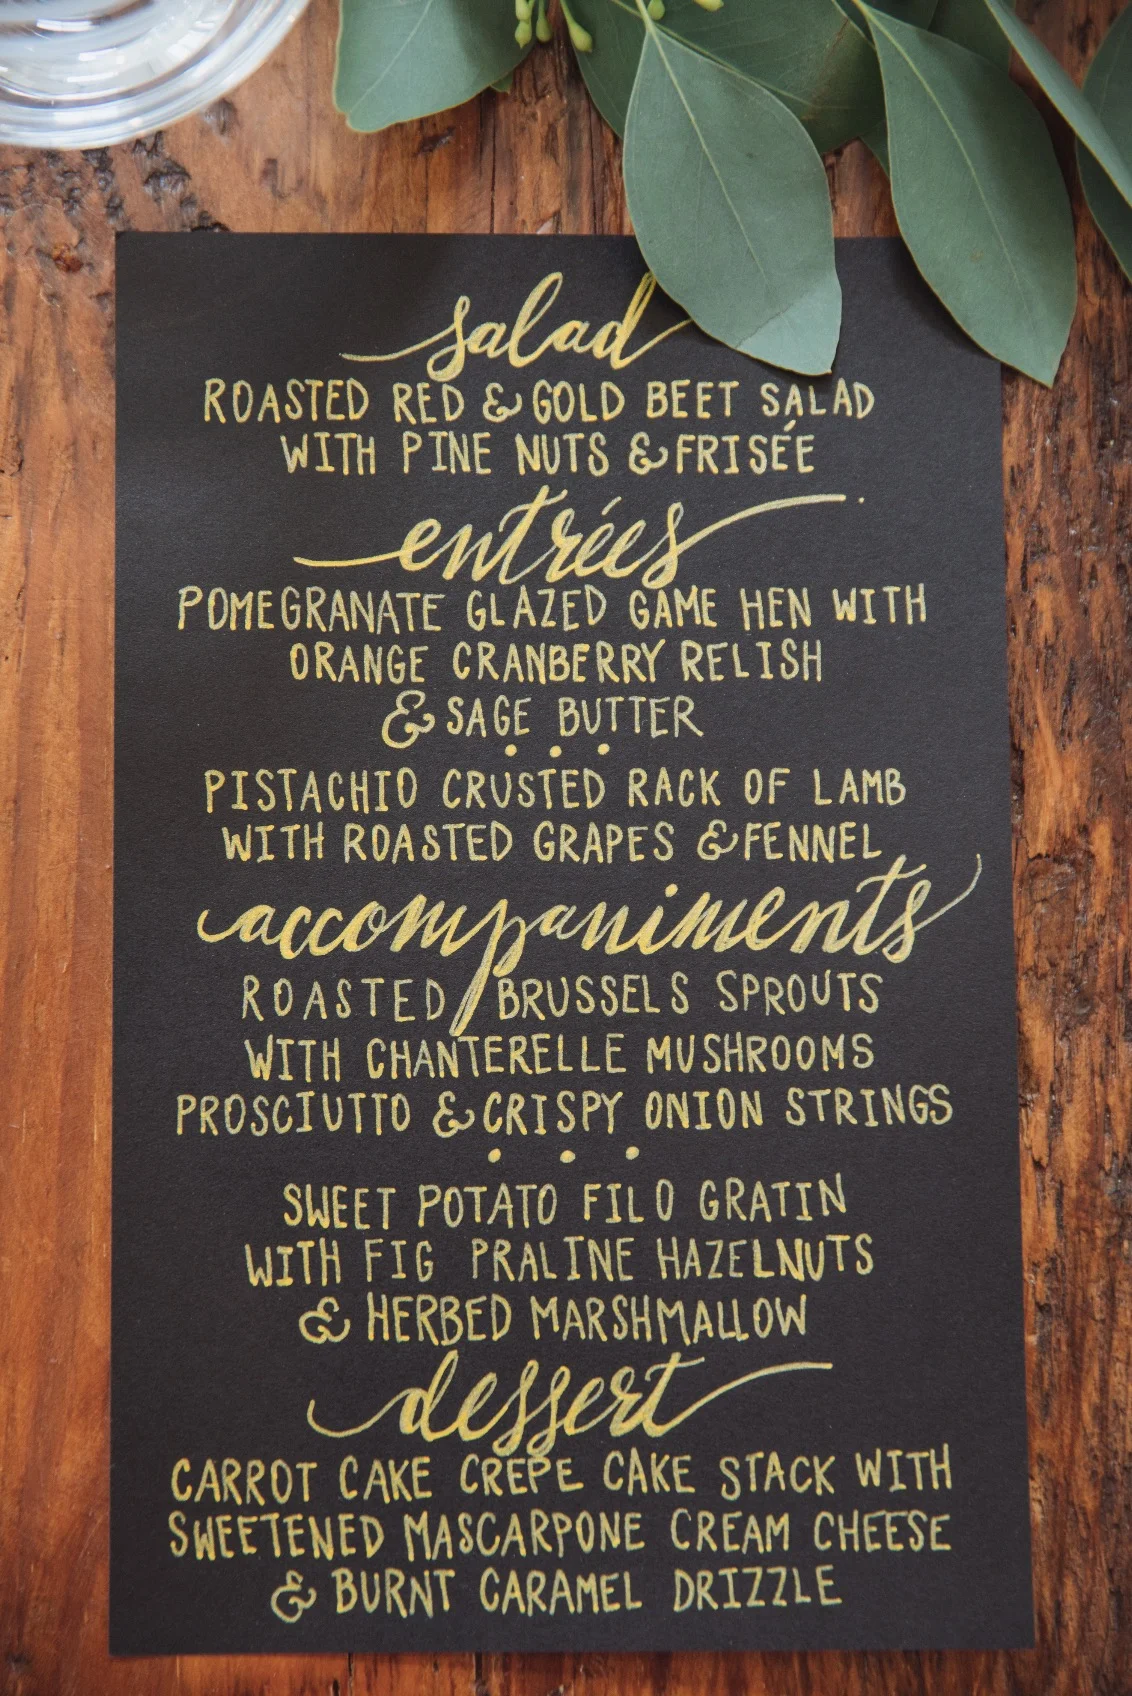 salad
ROASTED RED & GOLD BEET SALAD
WITH PINE NUTS & FRISÉE
entrées
POMEGRANATE GLAZED GAME HEN WITH
ORANGE CRANBERRY RELISH
& SAGE BUTTER
• • •
PISTACHIO CRUSTED RACK OF LAMB
WITH ROASTED GRAPES & FENNEL
accompaniments
ROASTED BRUSSELS SPROUTS
WITH CHANTERELLE MUSHROOMS
PROSCIUTTO & CRISPY ONION STRINGS
• • •
SWEET POTATO FILO GRATIN
WITH FIG PRALINE HAZELNUTS
& HERBED MARSHMALLOW
dessert
CARROT CAKE CREPE CAKE STACK WITH
SWEETENED MASCARPONE CREAM CHEESE
& BURNT CARAMEL DRIZZLE